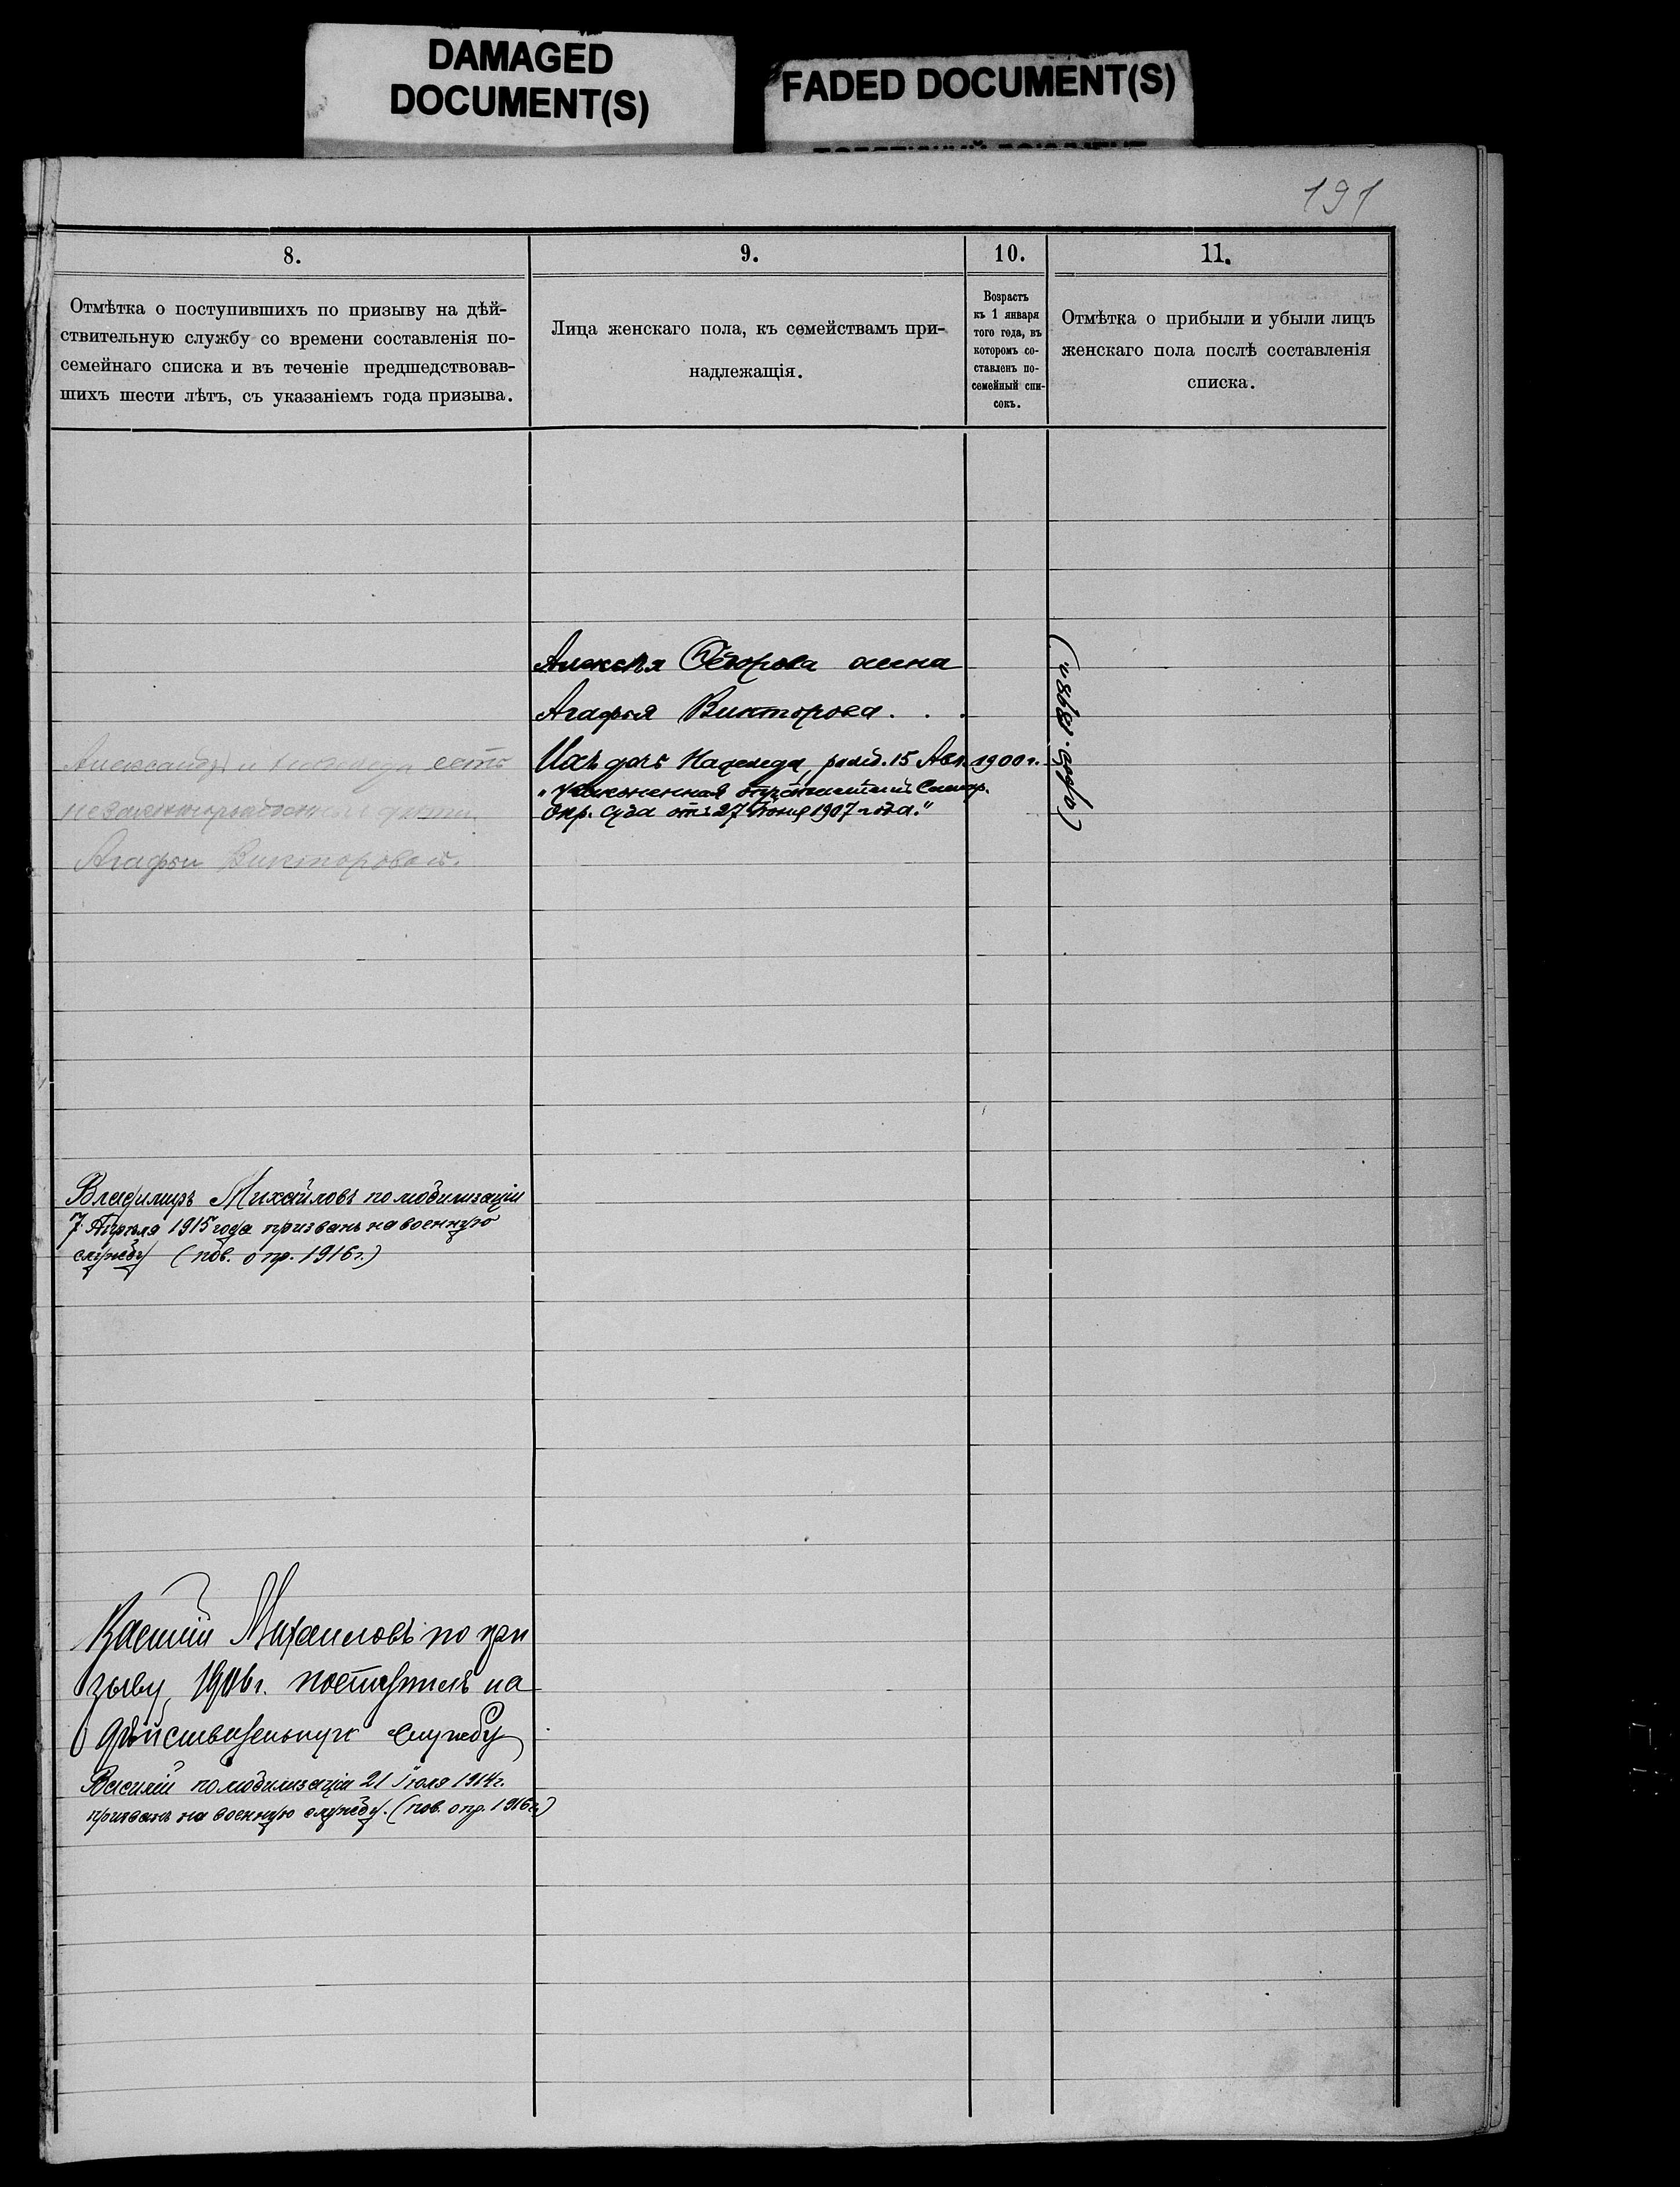 DAMAGED
DOCUMENT(S)
FADED DOCUMENT(S)
191
8.
Отмѣтка о поступившихъ по призыву на дѣй-
ствительную службу со времени составленія по-
семейнаго списка и въ теченіе предшедствовав-
шихъ шести лѣтъ, съ указаніемъ года призыва.
9.
Лица женскаго пола, къ семействамъ при-
надлежащія.
10.
Возрастъ
къ 1 января
того года, въ
которомъ со-
ставленъ по-
семейный спи-
сокъ.
11.
Отмѣтка о прибыли и убыли лицъ
женскаго пола послѣ составленія
списка.
Алексѣя Ѳедорова жена
Агафья Викторова . . .
Ихъ дочь Надежда, рожд. 15 Авг. 1900 г.
„узаконенная опредѣленіемъ Самар.
Окр. Суда отъ 27 Іюня 1907 года."
Александръ и Надежда есть
незаконнорожденныя дѣти
Агафьи Викторовой.
Владимиръ Михайловъ по мобилизаціи
7 Апрѣля 1915 года призванъ на военную
службу (пов. о пр. 1916 г.)
Василій Михаиловъ по при
зыву 1906 г. поступилъ на
дѣйствительную службу
Василій по мобилизаціи 21 Іюля 1914 г.
призванъ на военную службу. (пов. о пр. 1916 г.)